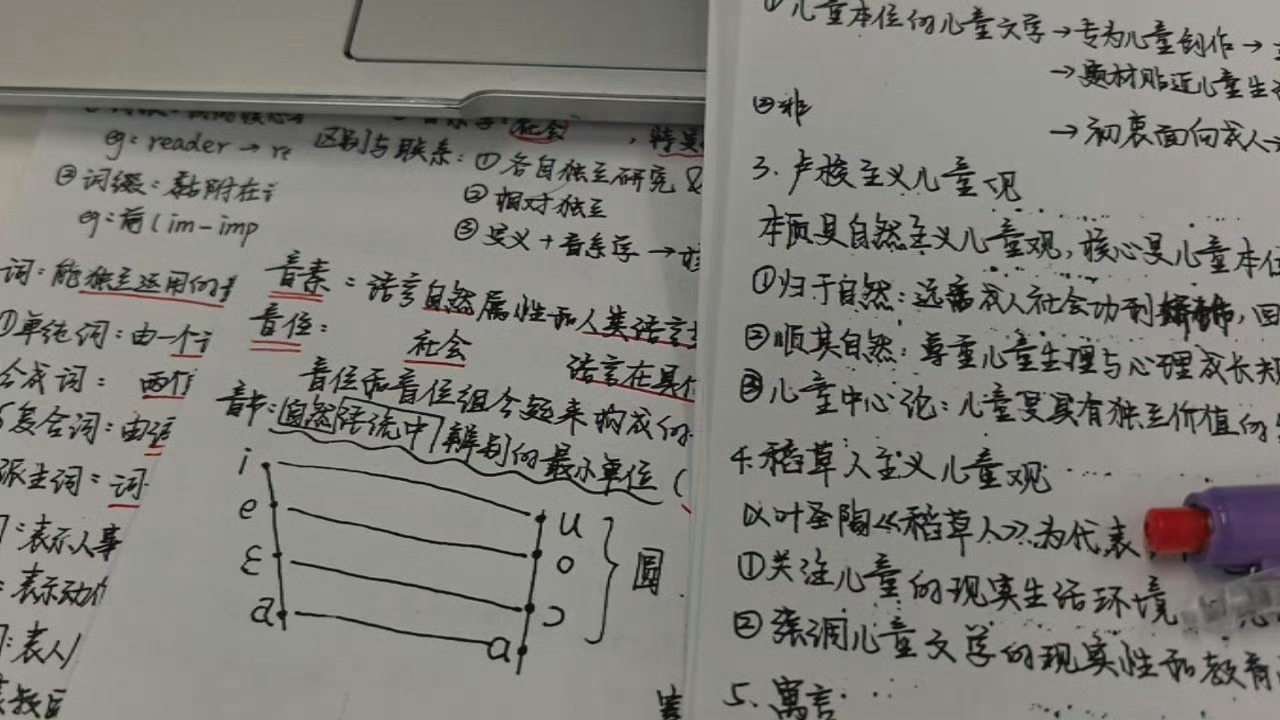 eg: reader → re
②词缀：黏附在
eg：前（im-imp
词：能独立运用的
①单纯词：由一个
合成词：两个
复合词：由语
派生词：词
表示人事
表示动作
表人
社会
区别与联系：①各自独立研究
②相对独立
③定义＋音系学→
音素：语言自然属性和人类语言
音位：
社会 语言在具体
音位和音位组合起来构成的
音节：自然语流中辨别的最小单位（
i
e u
ɛ o
a ɔ
ɑ
圆
①儿童本位的儿童文学→专为儿童创作→
→题材贴近儿童生活
②非
→初衷面向成人→
3.卢梭主义儿童观
本质是自然主义儿童观，核心是儿童本位
①归于自然：远离成人社会功利，回
②顺其自然：尊重儿童生理与心理成长规
③儿童中心论：儿童是具有独立价值的
4.稻草人主义儿童观
以叶圣陶《稻草人》为代表
①关注儿童的现实生活环境
②强调儿童文学的现实性和教育
5.寓言